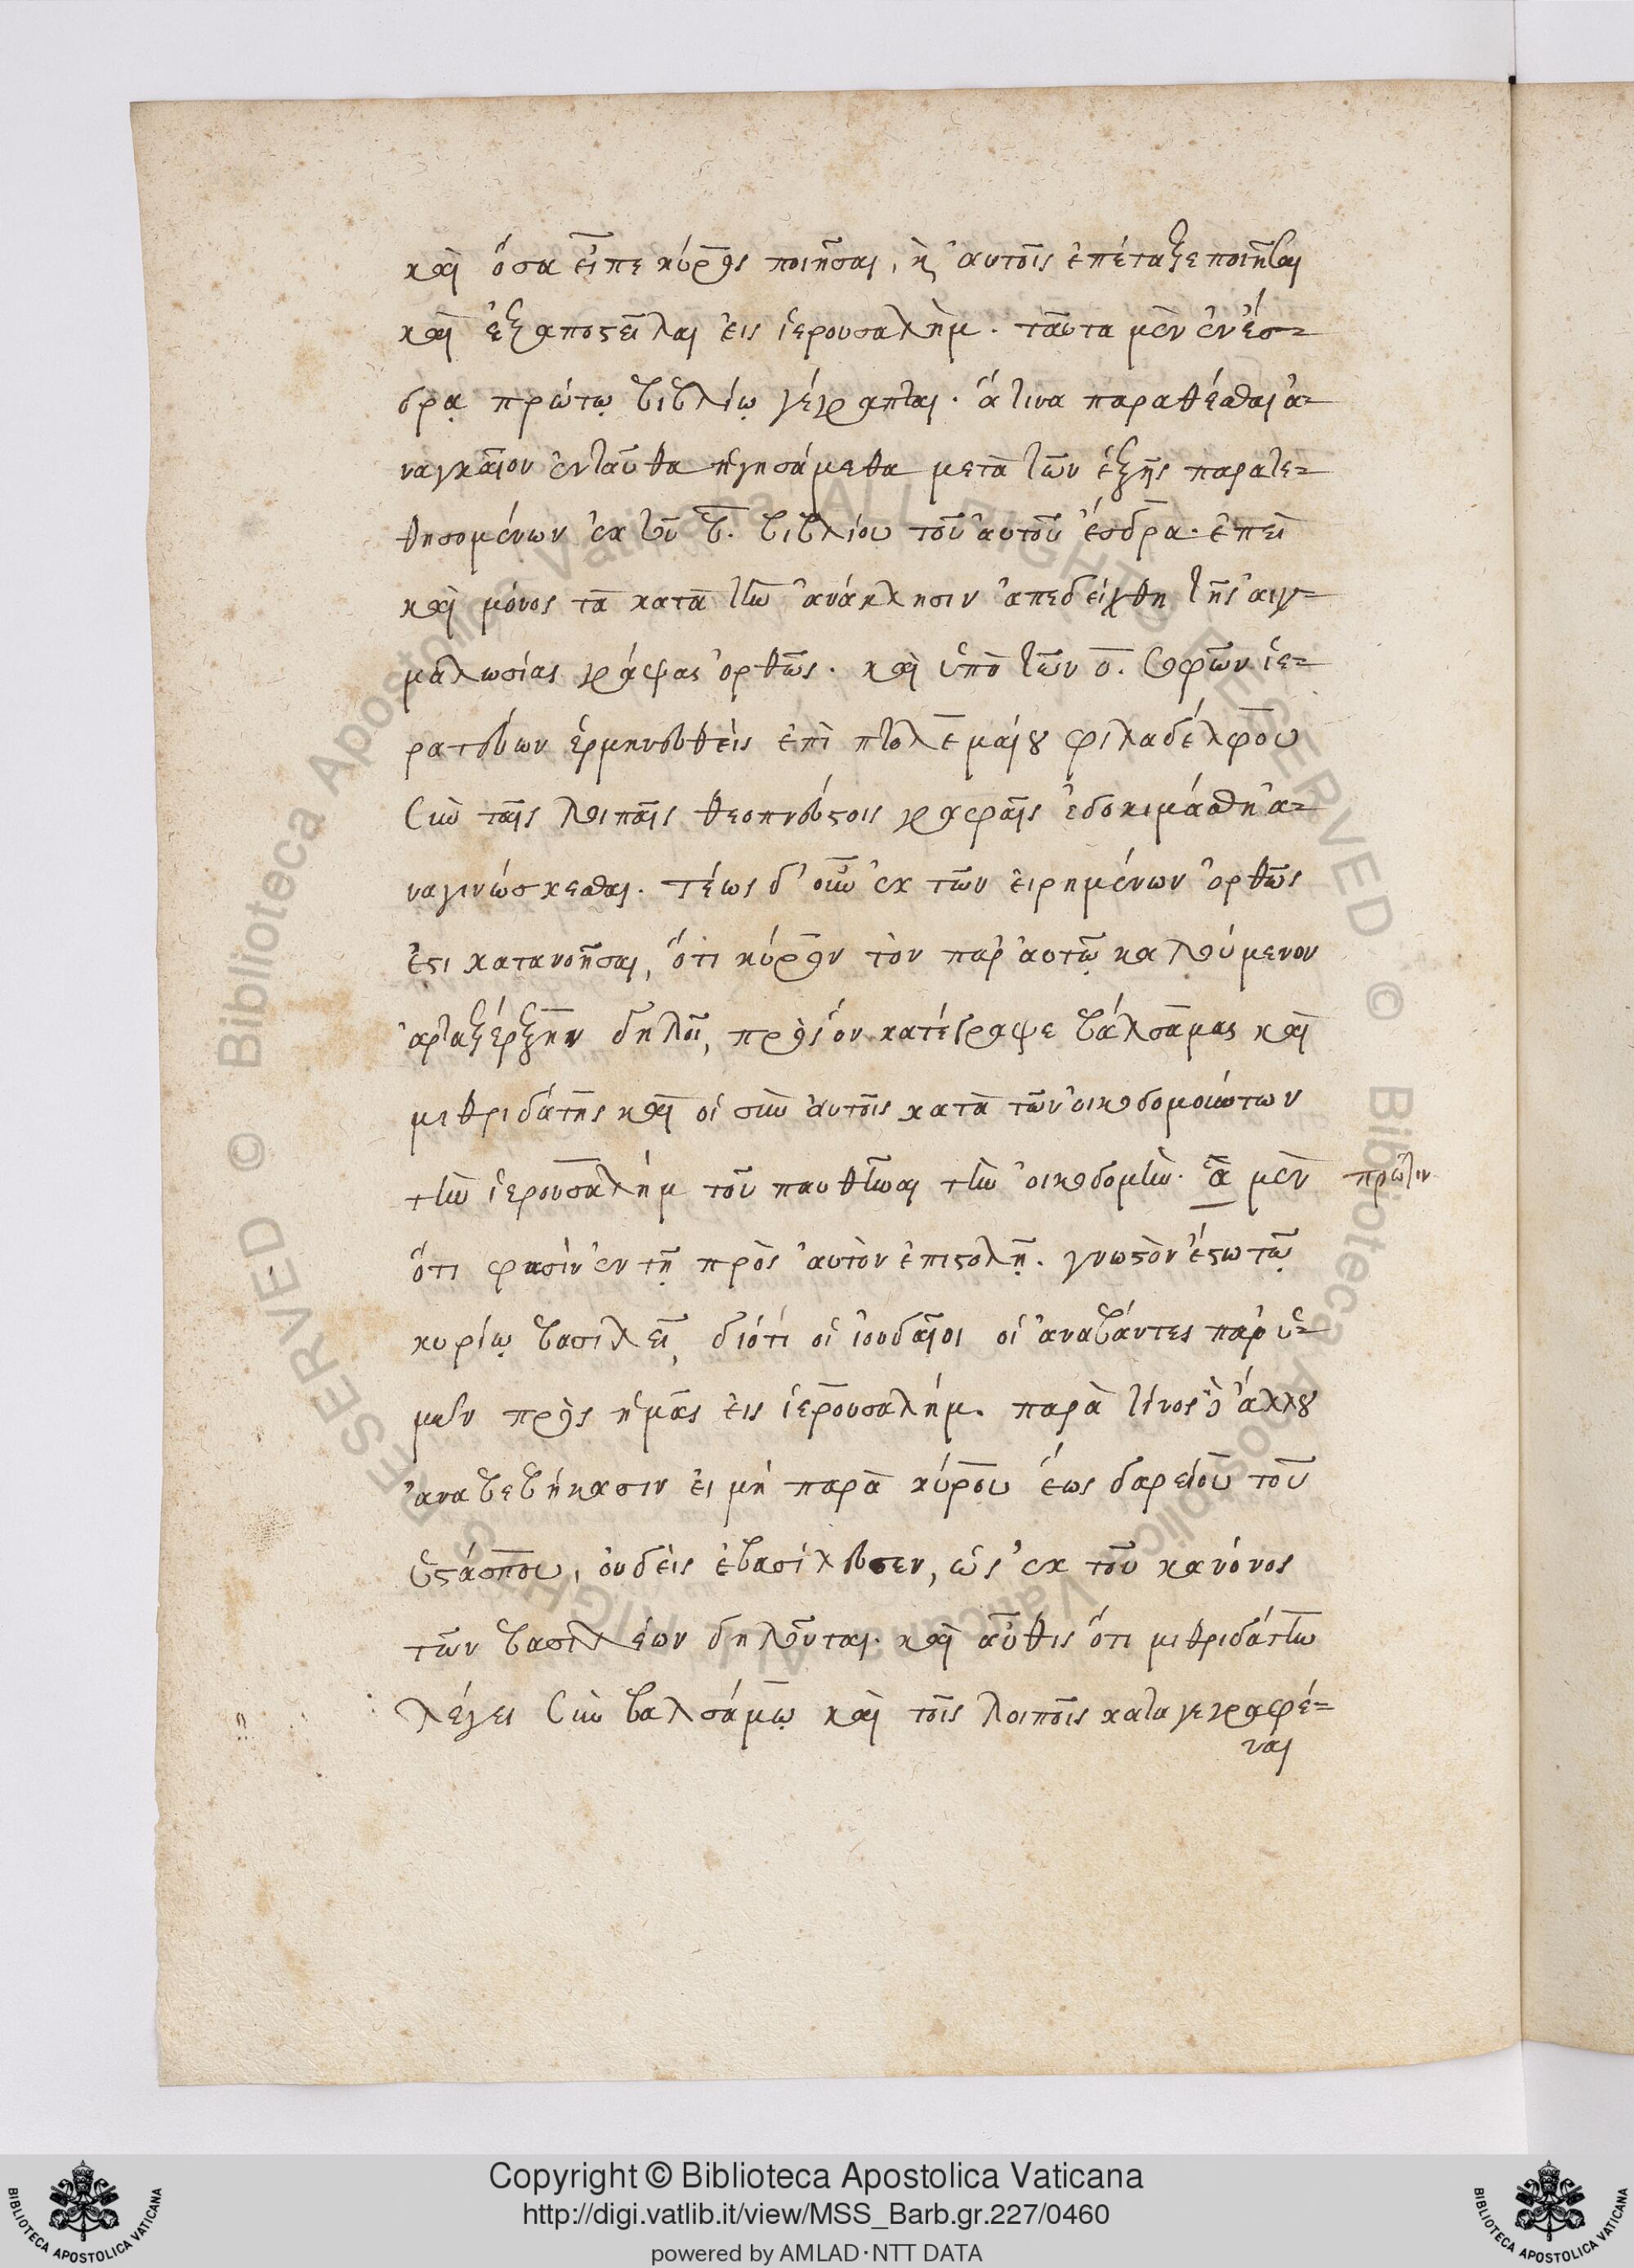 καὶ ὅσα εἶπε κύρος ποιῆσαι, κ̀ αὐτοῖς ἐπέταξε ποιῆσαι
καὶ ἐξαποστεῖλαι εἰς ἱερουσαλὴμ. ταῦτα μὲν ἐν ἔσ-
δρᾳ πρώτῳ βιβλίῳ γέγραπται. ἅτινα παραθέσθαι ἀ-
ναγκαῖον ἐνταῦθα ἡγησάμεθα μετὰ τῶν ἑξῆς παρατε-
θησομένων ἐκ τοῦ β. βιβλίου τοῦ αὐτοῦ ἔσδρα. ἐπεὶ
καὶ μόνος τὰ κατὰ τὴν ἀνάκλησιν ἀπεδείχθη τῆς αἰχ-
μαλωσίας γράψας ὀρθῶς. καὶ ὑπὸ τῶν ο. σοφῶν ἱε-
ρατεύων ἑρμηνευθεὶς ἐπὶ πτολεμαίου φιλαδέλφου
σὺν ταῖς λοιπαῖς θεοπνεύστοις γραφαῖς ἐδοκιμάσθη ἀ-
ναγινώσκεσθαι. τέως δ' οὖν ἐκ τῶν εἰρημένων ὀρθῶς
ἔστι κατανοῆσαι, ὅτι κύρον τὸν παρ' αὐτῷ καλούμενον
ἀρταξέρξην δηλοῖ, πρὸς ὃν κατέγραψε βάλσαμας καὶ
μιθριδάτης καὶ οἱ σὺν αὐτοῖς κατὰ τῶν οἰκοδομούντων
τὴν ἱερουσαλήμ τοῦ παυθῆναι τὴν οἰκοδομὴν. ἃ μὲν πρῶτον
ὅτι φασὶν ἐν τῇ πρὸς αὐτὸν ἐπιστολῇ. γνωστὸν ἔστω τῷ
κυρίῳ βασιλεῖ, διότι οἱ ἰουδαῖοι οἱ ἀναβάντες παρ' ὑ-
μῶν πρὸς ἡμᾶς εἰς ἱερουσαλήμ. παρὰ τίνος δὲ ἄλλου
ἀναβεβήκασιν εἰ μὴ παρὰ κύρου ἕως δαρείου τοῦ
ὑστάσπου, οὐδεὶς ἐβασίλευσεν, ὡς ἐκ τοῦ κανόνος
τῶν βασιλέων δηλοῦται. καὶ αὖθις ὅτι μιθριδάτην
λέγει σὺν βαλσάμῳ καὶ τοῖς λοιποῖς καταγεγραφέ-
ναι
Copyright © Biblioteca Apostolica Vaticana
http://digi.vatlib.it/view/MSS_Barb.gr.227/0460
powered by AMLAD·NTT DATA